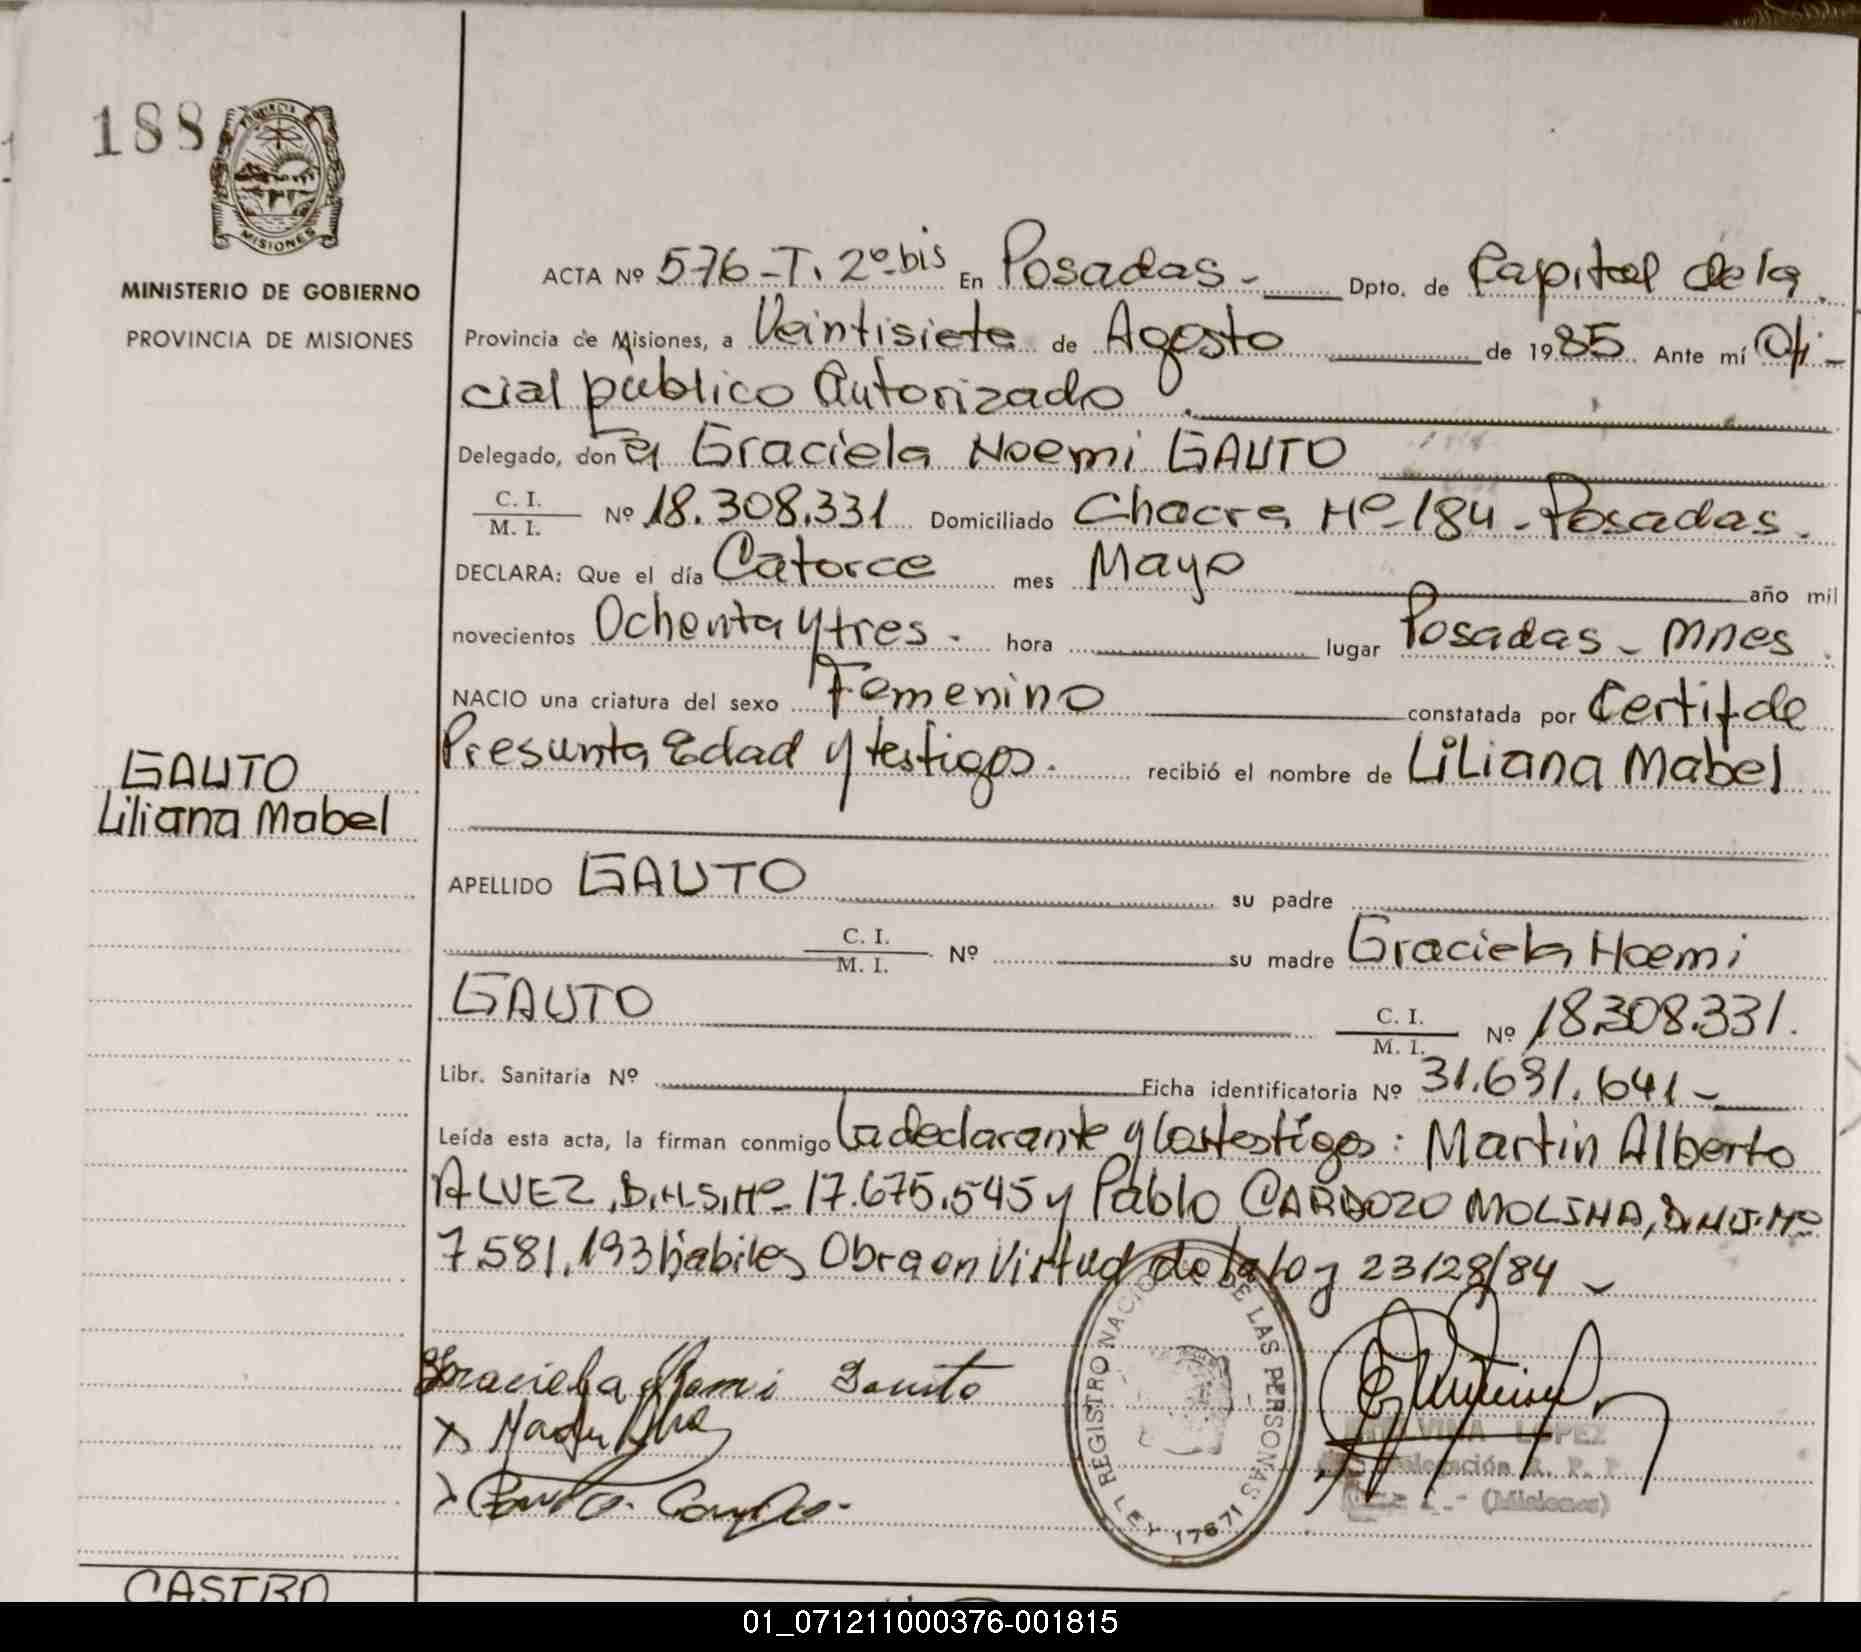 188
PROVINCIA
MISIONES
MINISTERIO DE GOBIERNO
PROVINCIA DE MISIONES
ACTA Nº 576-T. 2º bis En Posadas - Dpto. de Capital de la
Provincia de Misiones, a Veintisiete de Agosto de 1985 Ante mí Ofi-
cial público Autorizado
Delegado, don ra Graciela Noemi GAUTO
C. I.
M. I. Nº 18.308.331 Domiciliado Chacra Nº 184 - Posadas.
DECLARA: Que el día Catorce mes Mayo año mil
novecientos Ochenta y tres. hora lugar Posadas - Mnes
NACIO una criatura del sexo Femenino constatada por Certif de
Presunta Edad y testigos. recibió el nombre de Liliana Mabel
GAUTO
Liliana Mabel
APELLIDO GAUTO su padre
C. I.
M. I. Nº su madre Graciela Noemi
GAUTO C. I.
M. I. Nº 18.308.331.
Libr. Sanitaria Nº Ficha identificatoria Nº 31.691.641 -
Leída esta acta, la firman conmigo la declarante y los testigos: Martin Alberto
ALVEZ, D.N.I. Nº 17.675.545 y Pablo CARDOZO MOLINA, D.N.I. Nº
7.581.193 habiles Obra en Virtud de la ley 23128/84
Graciela Noemi Gauto
REGISTRO NACIO DE LAS PERSONAS
LEY 17671
LOPEZ
Delegación R. P. P.
(Misiones)
CASTRO
01_071211000376-001815